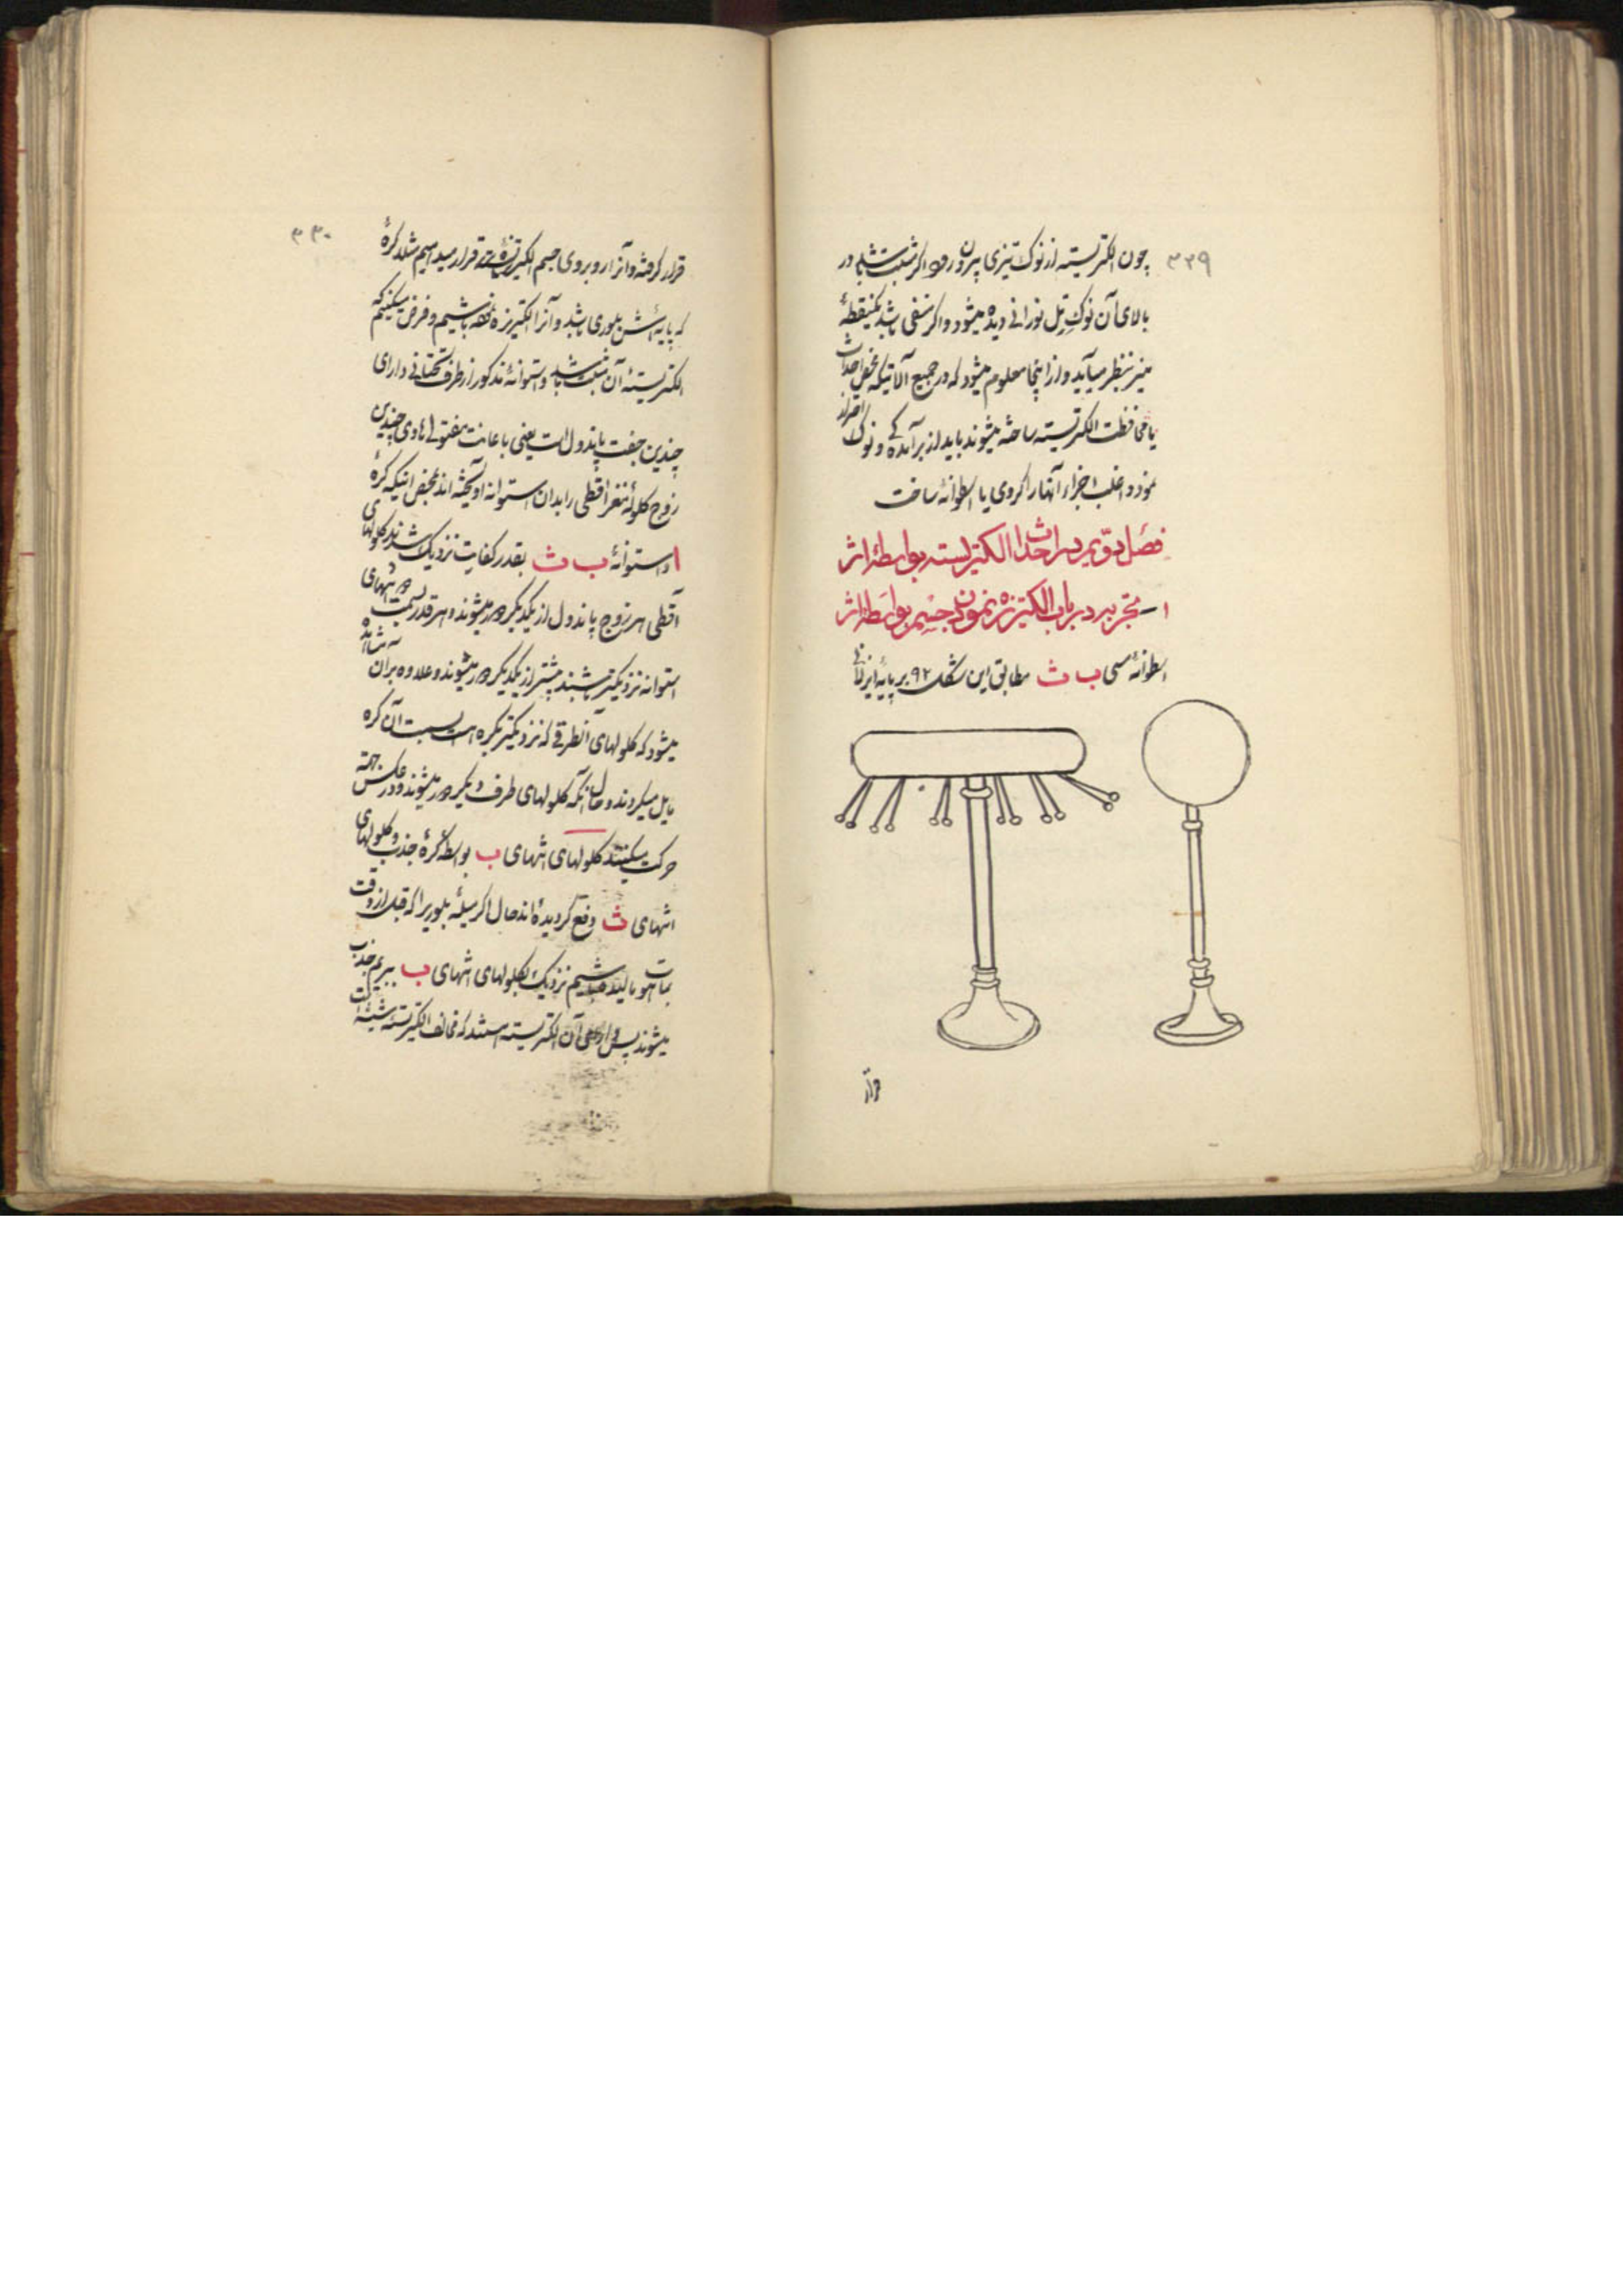 ۳۲۹
چون الکتریسته از نوک تیزی بیرون رود اگر مثبت باشد در
بالای آن نوک تل نورانی دیده میشود و اگر منفی باشد یکنقطهٔ
منیر بنظر میآید و از اینجا معلوم میشود که در جمیع آلاتیکه بمحض احداث
یا محافظت الکتریسته ساخته میشوند باید از برآمده‌کی و نوک احتراز
نمود و اغلب اجزاء آنها را کروی یا اسطوانهٔ ساخت
فصل دویم در احداث الکتریسته بواسطهٔ اثر
۱ – تجربه در باب الکتریزه نمودن جسم بواسطهٔ اثر
اسطوانهٔ مسی ب ث مطابق این شکل ۹۲ بر پایهٔ
و آنرا
۳۳۰
قرار گرفته و آنرا روبروی جسم الکتریزهٔ قرار میدهیم مثلا کرهٔ
که پایه‌اش بلوری باشد و آنرا الکتریزه نموده باشیم و فرض میکنیم که
الکتریستهٔ آن مثبت باشد و استوانهٔ مذکور از طرف تحتانی دارای
چندین جفت پاندول است یعنی باعانت مفتولهای چندین
زوج کلولهٔ مغز اقطی را بدان استوانه آویخته‌اند بمحض اینکه کرهٔ
ا و استوانهٔ ب ث بقدر کفایت نزدیک شدند کلولهای
اقطی هر زوج پاندول از یکدیگر دور میشوند و هر قدر بسمت انتهای
استوانه نزدیکتر باشند بیشتر از یکدیگر دور میشوند و علاوه بر آن مشاهده
میشود که کلولهای آنطرفی که نزدیکتر بکره است بسمت آن کره
مایل میگردند و حال آنکه کلولهای طرف دیگر دور میشوند و در عکس جهته
حرکت میکنند کلولهای انتهای ب بواسطهٔ کرهٔ جذب و کلولهای
انتهای ث دفع گردیده‌اند حال اگر میلهٔ بلوریرا که قبل از وقت
بماهوت مالیده باشیم نزدیک بکلولهای انتهای ب ببریم جذب
میشوند پس دارای آن الکتریسته هستند که مخالف الکتریستهٔ شیشه است